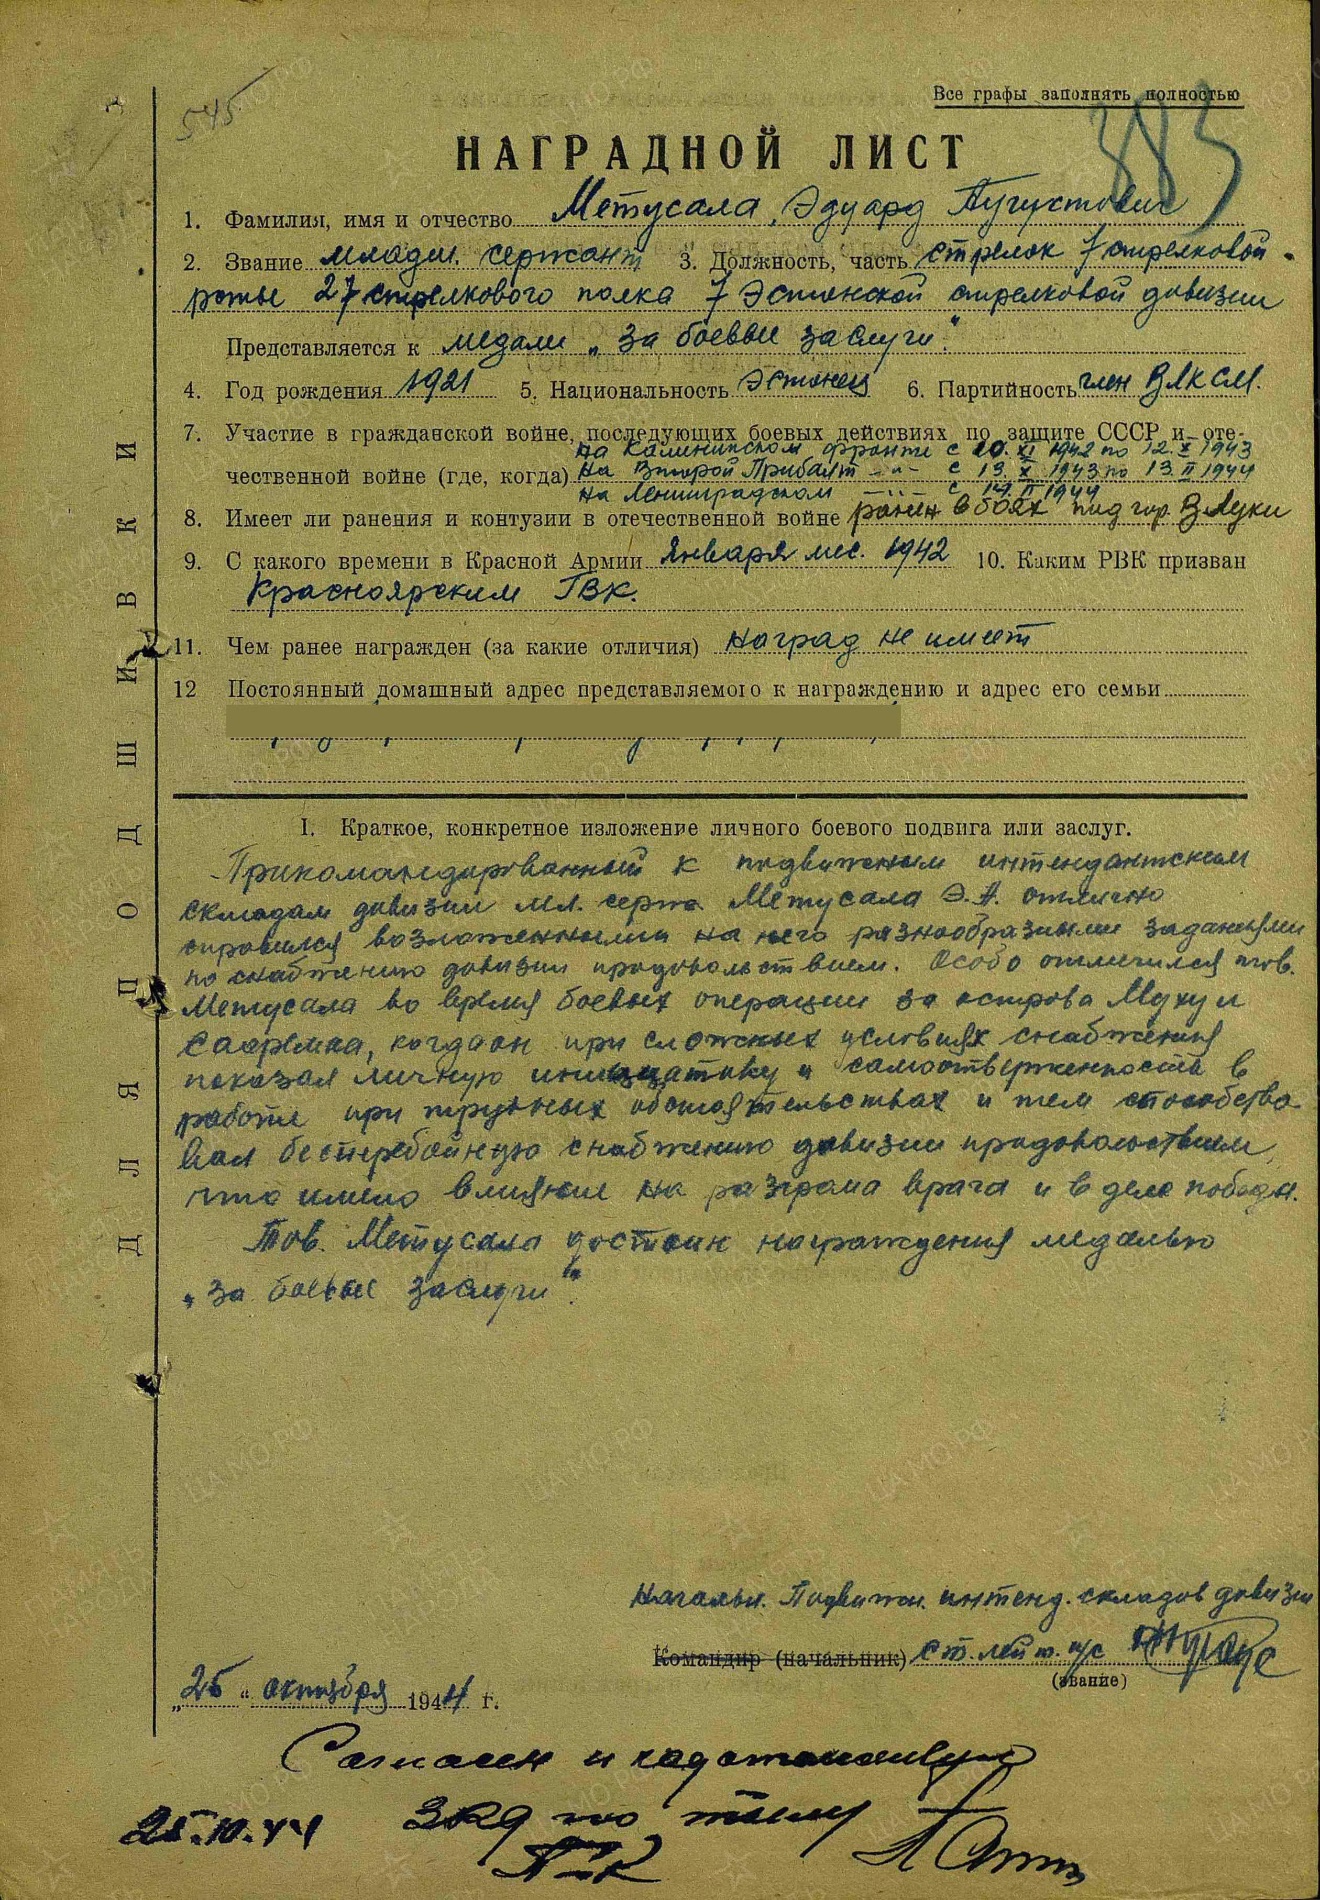 545
Все графы заполнять полностью
383
НАГРАДНОЙ ЛИСТ
1. Фамилия, имя и отчество Метусала, Эдуард Аугустович
2. Звание младш. сержант 3. Должность, часть стрелок 7 стрелковой
роты 27 стрелкового полка 7 Эстонской стрелковой дивизии
Представляется к медали „За боевые заслуги“.
4. Год рождения 1921 5. Национальность Эстонец 6. Партийность член ВЛКСМ.
7. Участие в гражданской войне, последующих боевых действиях по защите СССР и оте-
на Калининском фронте с 20. XI 1942 по 12. X 1943
чественной войне (где, когда) на Второй Прибалт -„- с 13. X 1943 по 13 II 1944
на Ленинградском -„- с 14. II 1944
8. Имеет ли ранения и контузии в отечественной войне ранен в боях под гор. В. Луки
9. С какого времени в Красной Армии Января мес. 1942 10. Каким РВК призван
Красноярским ГВК.
11. Чем ранее награжден (за какие отличия) наград не имеет
12 Постоянный домашный адрес представляемого к награждению и адрес его семьи
I. Краткое, конкретное изложение личного боевого подвига или заслуг.
Прикомандированный к подвижным интендантским
складам дивизии мл. серж. Метусала Э. А. отлично
справился возложенными на него разнообразными заданиями
по снабжению дивизии продовольствием. Особо отличился тов.
Метусала во время боевых операции за острова Муху и
Сааремаа, когда он при сложных условиях снабжения
показал личную инициативу и самоотверженность в
работе при трудных обстоятельствах и тем способство
вал бесперебойную снабжению дивизии продовольствием,
что имело влияние на разгрома врага и в деле победы.
Тов. Метусала достоин награждения медалью
„за боевые заслуги“.
Начальн. Подвижн. интенд. складов дивизии
Командир (начальник) ст. лейт. и/с
(звание)
„25“ октября 1944 г.
Согласен и ходотайствую
25.10.44 ЗКД по тылу
П-К
ДЛЯ ПОДШИВКИ